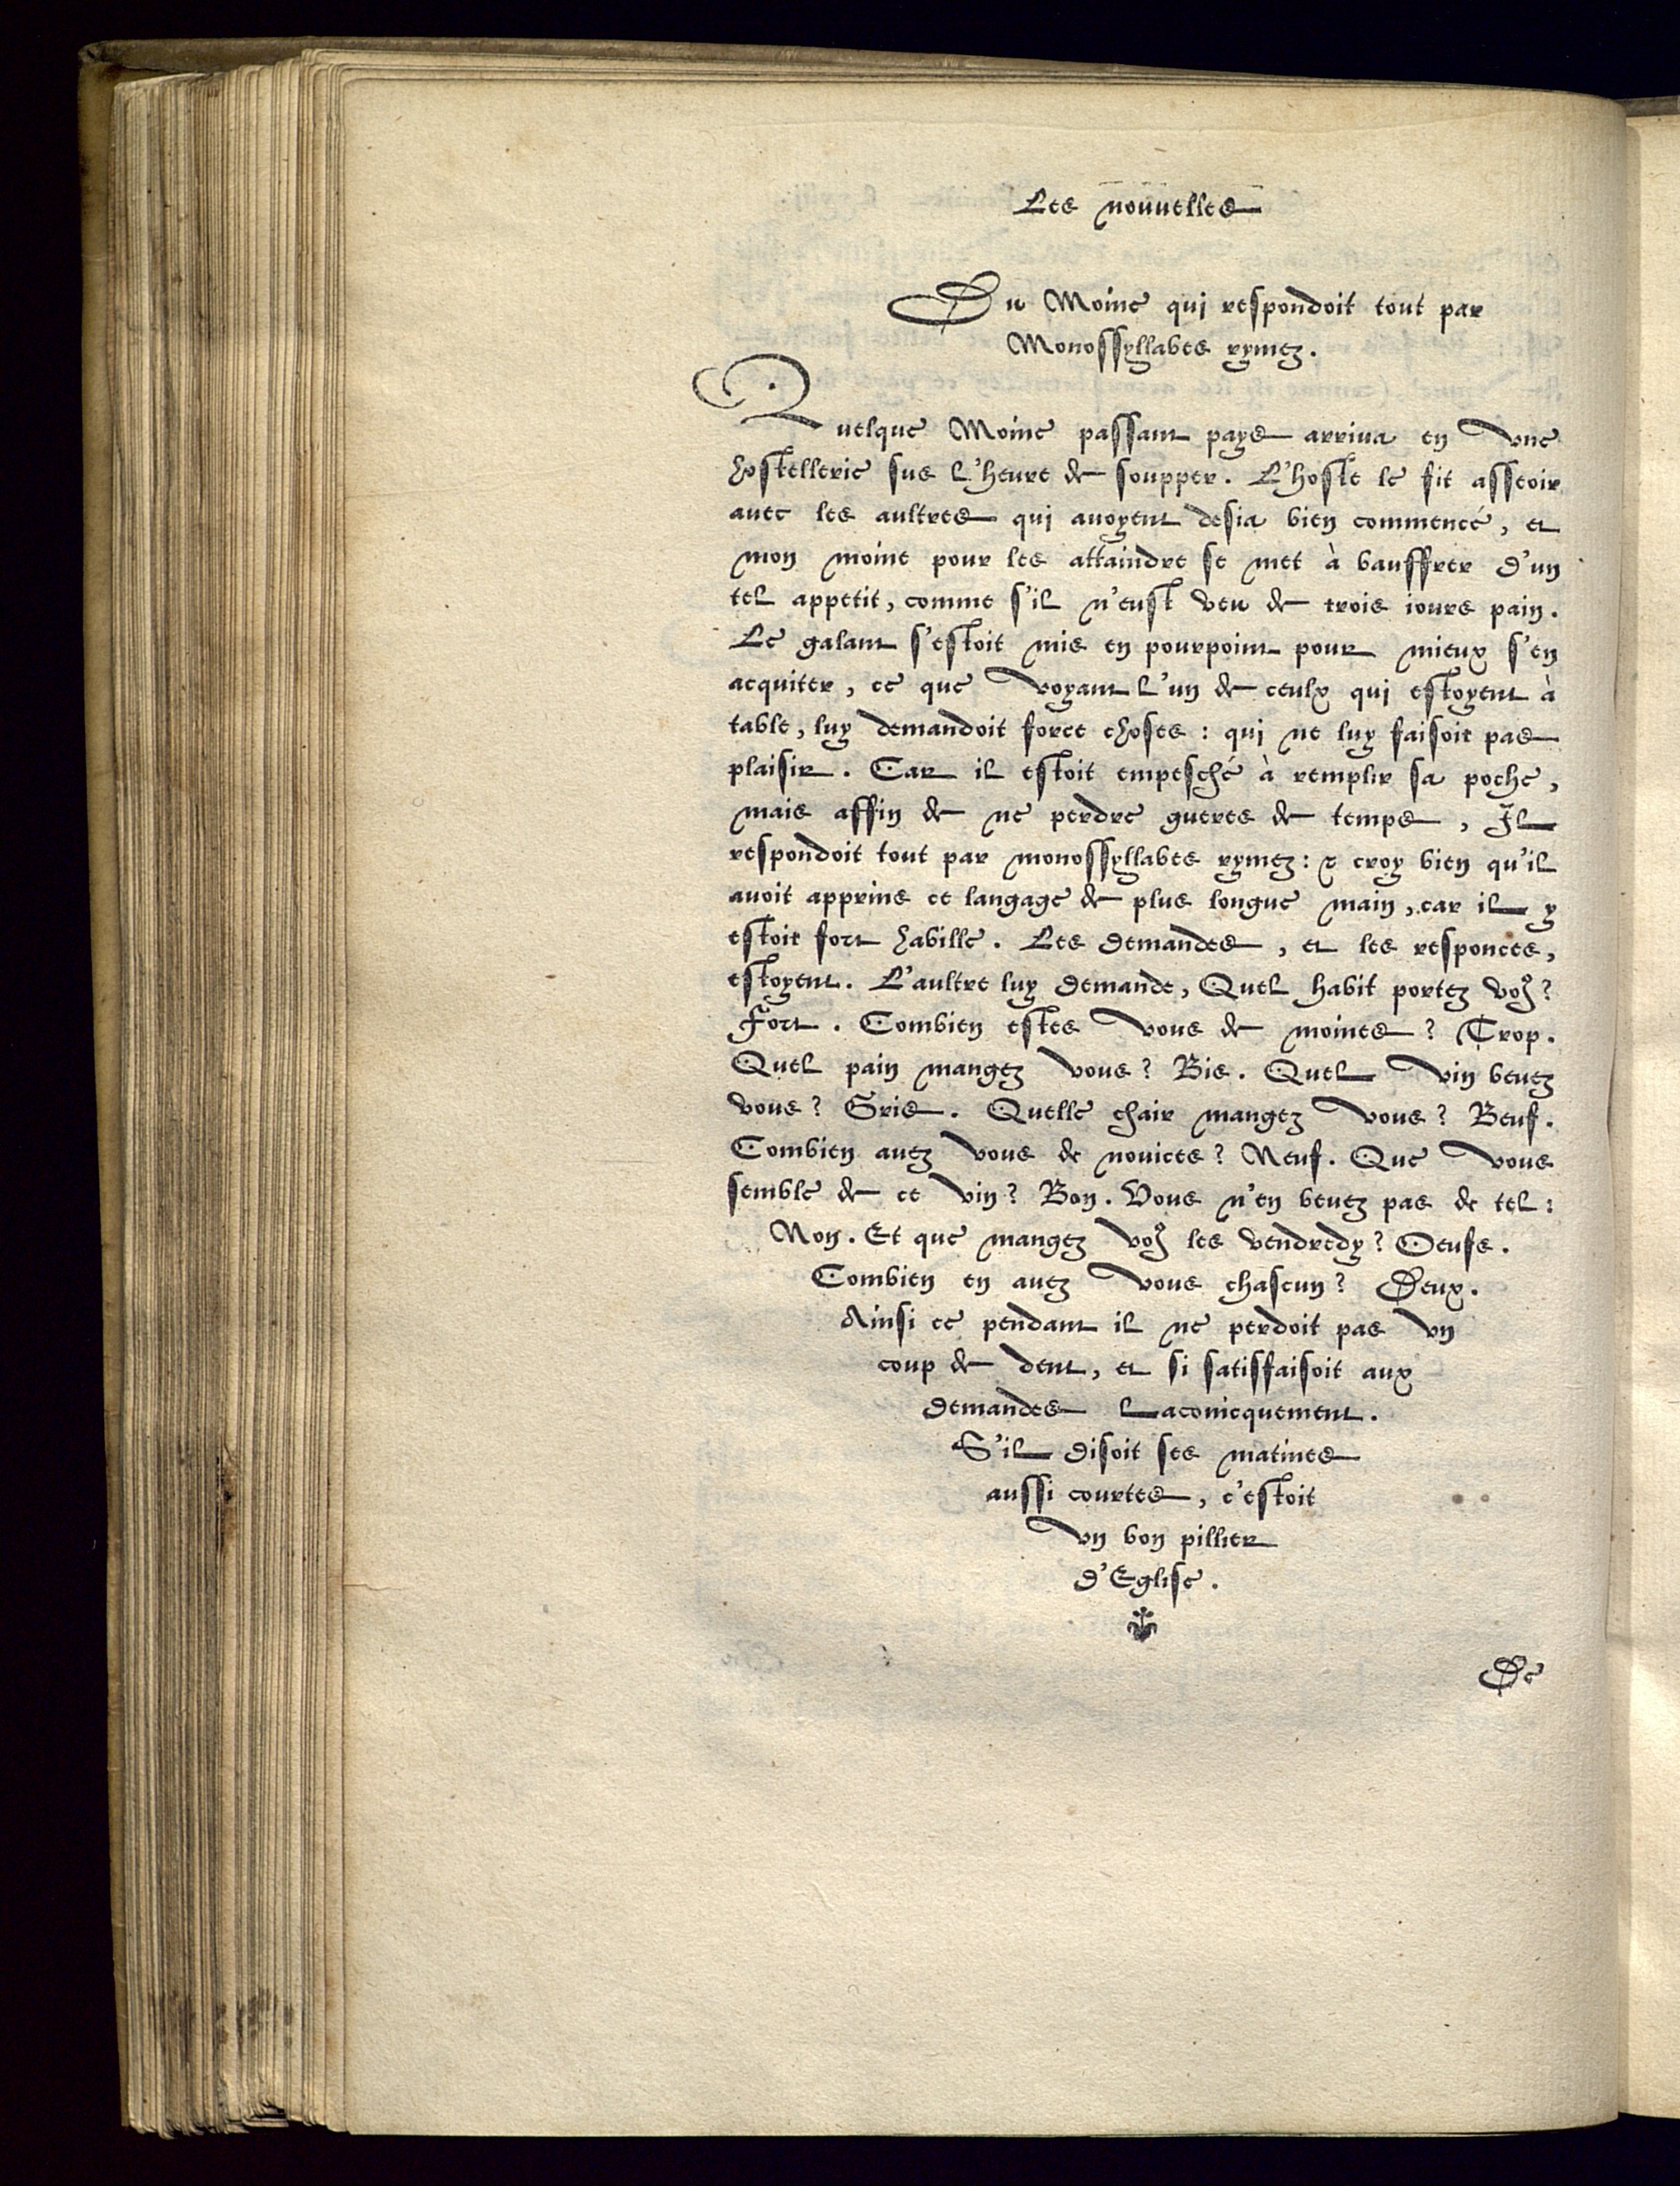 Les nouuelles
Du Moine qui respondoit tout par
Monossyllabes rymez.
Quelque Moine passant pays arriua en vne
hostellerie sus l'heure de soupper. L'hoste le fit asseoir
auec les aultres qui auoyent desia bien commencé, et
mon moine pour les attaindre se met à bauffrer d'un
tel appetit, comme s'il n'eust veu de trois iours pain.
Le galant s'estoit mis en pourpoint pour mieux s'en
acquiter, ce que voyant l'un de ceulx qui estoyent à
table, luy demandoit force choses : qui ne luy faisoit pas
plaisir. Car il estoit empesché à remplir sa poche,
mais affin de ne perdre gueres de temps, Il
respondoit tout par monossyllabes rymez : & croy bien qu'il
auoit apprins ce langage de plus longue main, car il y
estoit fort habille. Les demandes, et les responces,
estoyent. L'aultre luy demande, Quel habit portez voꝰ?
Fort. Combien estes vous de moines? Trop.
Quel pain mangez vous? Bis. Quel vin beuez
vous? Gris. Quelle chair mangez vous? Beuf.
Combien auez vous de nouices? Neuf. Que vous
semble de ce vin? Bon. Vous n'en beuez pas de tel :
Non. Et que mangez voꝰ les vendredy? Oeufs.
Combien en auez vous chascun? Deux.
Ainsi ce pendant il ne perdoit pas vn
coup de dent, et si satisfaisoit aux
demandes Laconicquement.
S'il disoit ses matines
aussi courtes, c'estoit
vn bon pillier
d'Eglise.
De